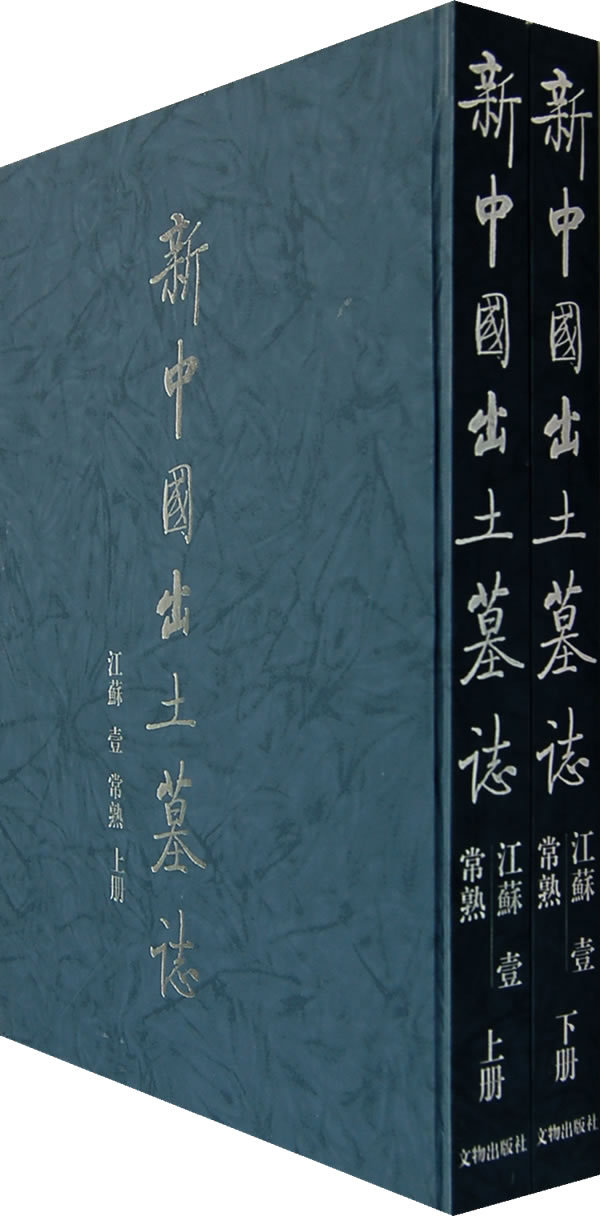 新中國出土墓誌
江蘇 壹 常熟 上册
新中國出土墓誌
江蘇 壹
常熟
上册
文物出版社
新中國出土墓誌
江蘇 壹
常熟
下册
文物出版社